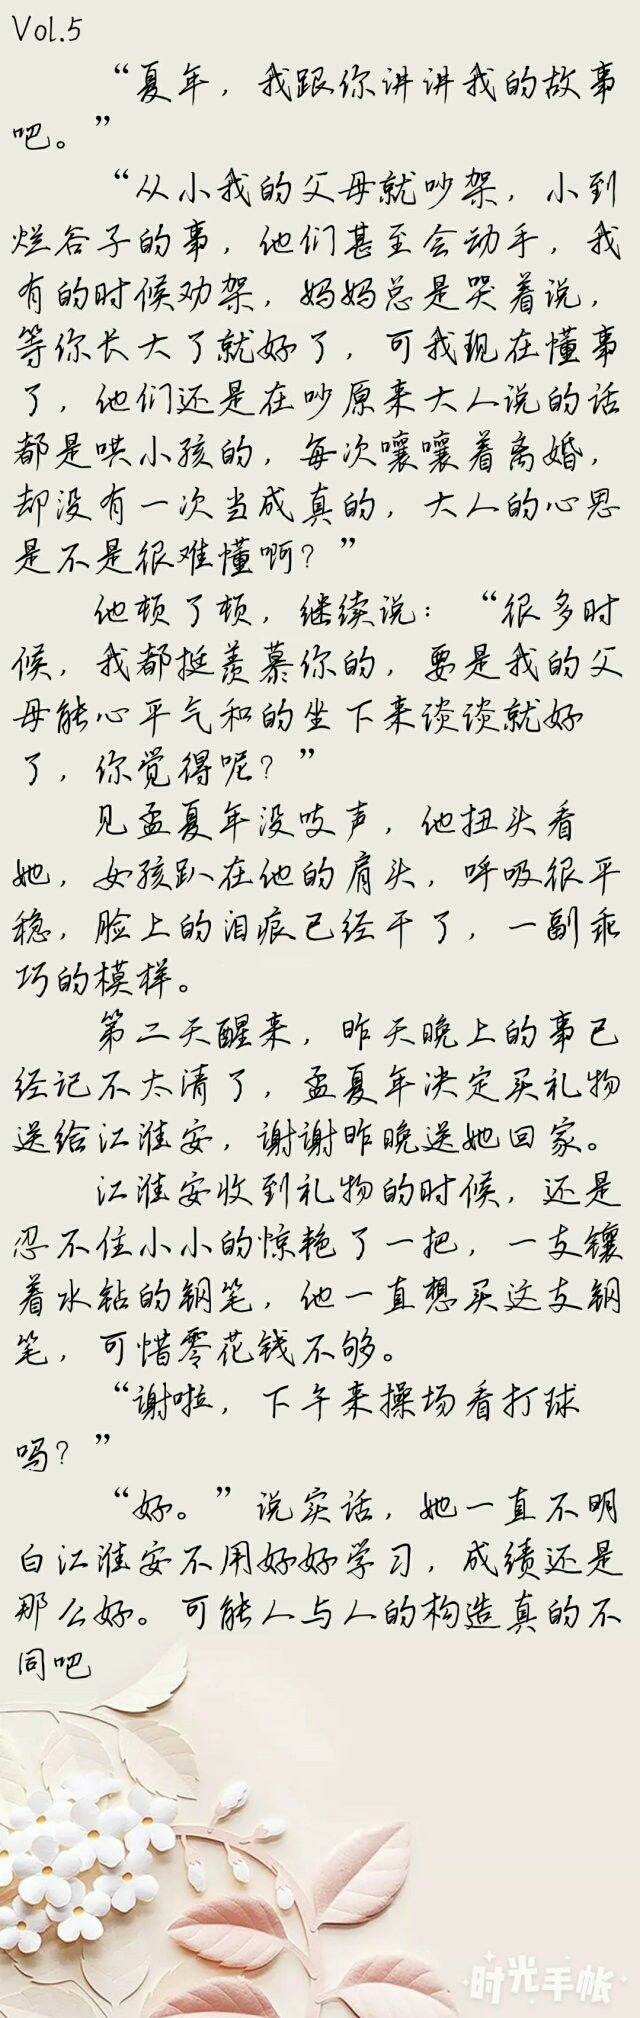 Vol.5
“夏年，我跟你讲讲我的故事
吧。”
“从小我的父母就吵架，小到
烂谷子的事，他们甚至会动手，我
有的时候劝架，妈妈总是哭着说，
等你长大了就好了，可我现在懂事
了，他们还是在吵原来大人说的话
都是哄小孩的，每次嚷嚷着离婚，
却没有一次当成真的，大人的心思
是不是很难懂啊？”
他顿了顿，继续说：“很多时
候，我都挺羡慕你的，要是我的父
母能心平气和的坐下来谈谈就好
了，你觉得呢？”
见孟夏年没吱声，他扭头看
她，女孩趴在他的肩头，呼吸很平
稳，脸上的泪痕已经干了，一副乖
巧的模样。
第二天醒来，昨天晚上的事已
经记不太清了，孟夏年决定买礼物
送给江淮安，谢谢昨晚送她回家。
江淮安收到礼物的时候，还是
忍不住小小的惊艳了一把，一支镶
着水钻的钢笔，他一直想买这支钢
笔，可惜零花钱不够。
“谢啦，下午来操场看打球
吗？”
“好。”说实话，她一直不明
白江淮安不用好好学习，成绩还是
那么好。可能人与人的构造真的不
同吧
时光手帐